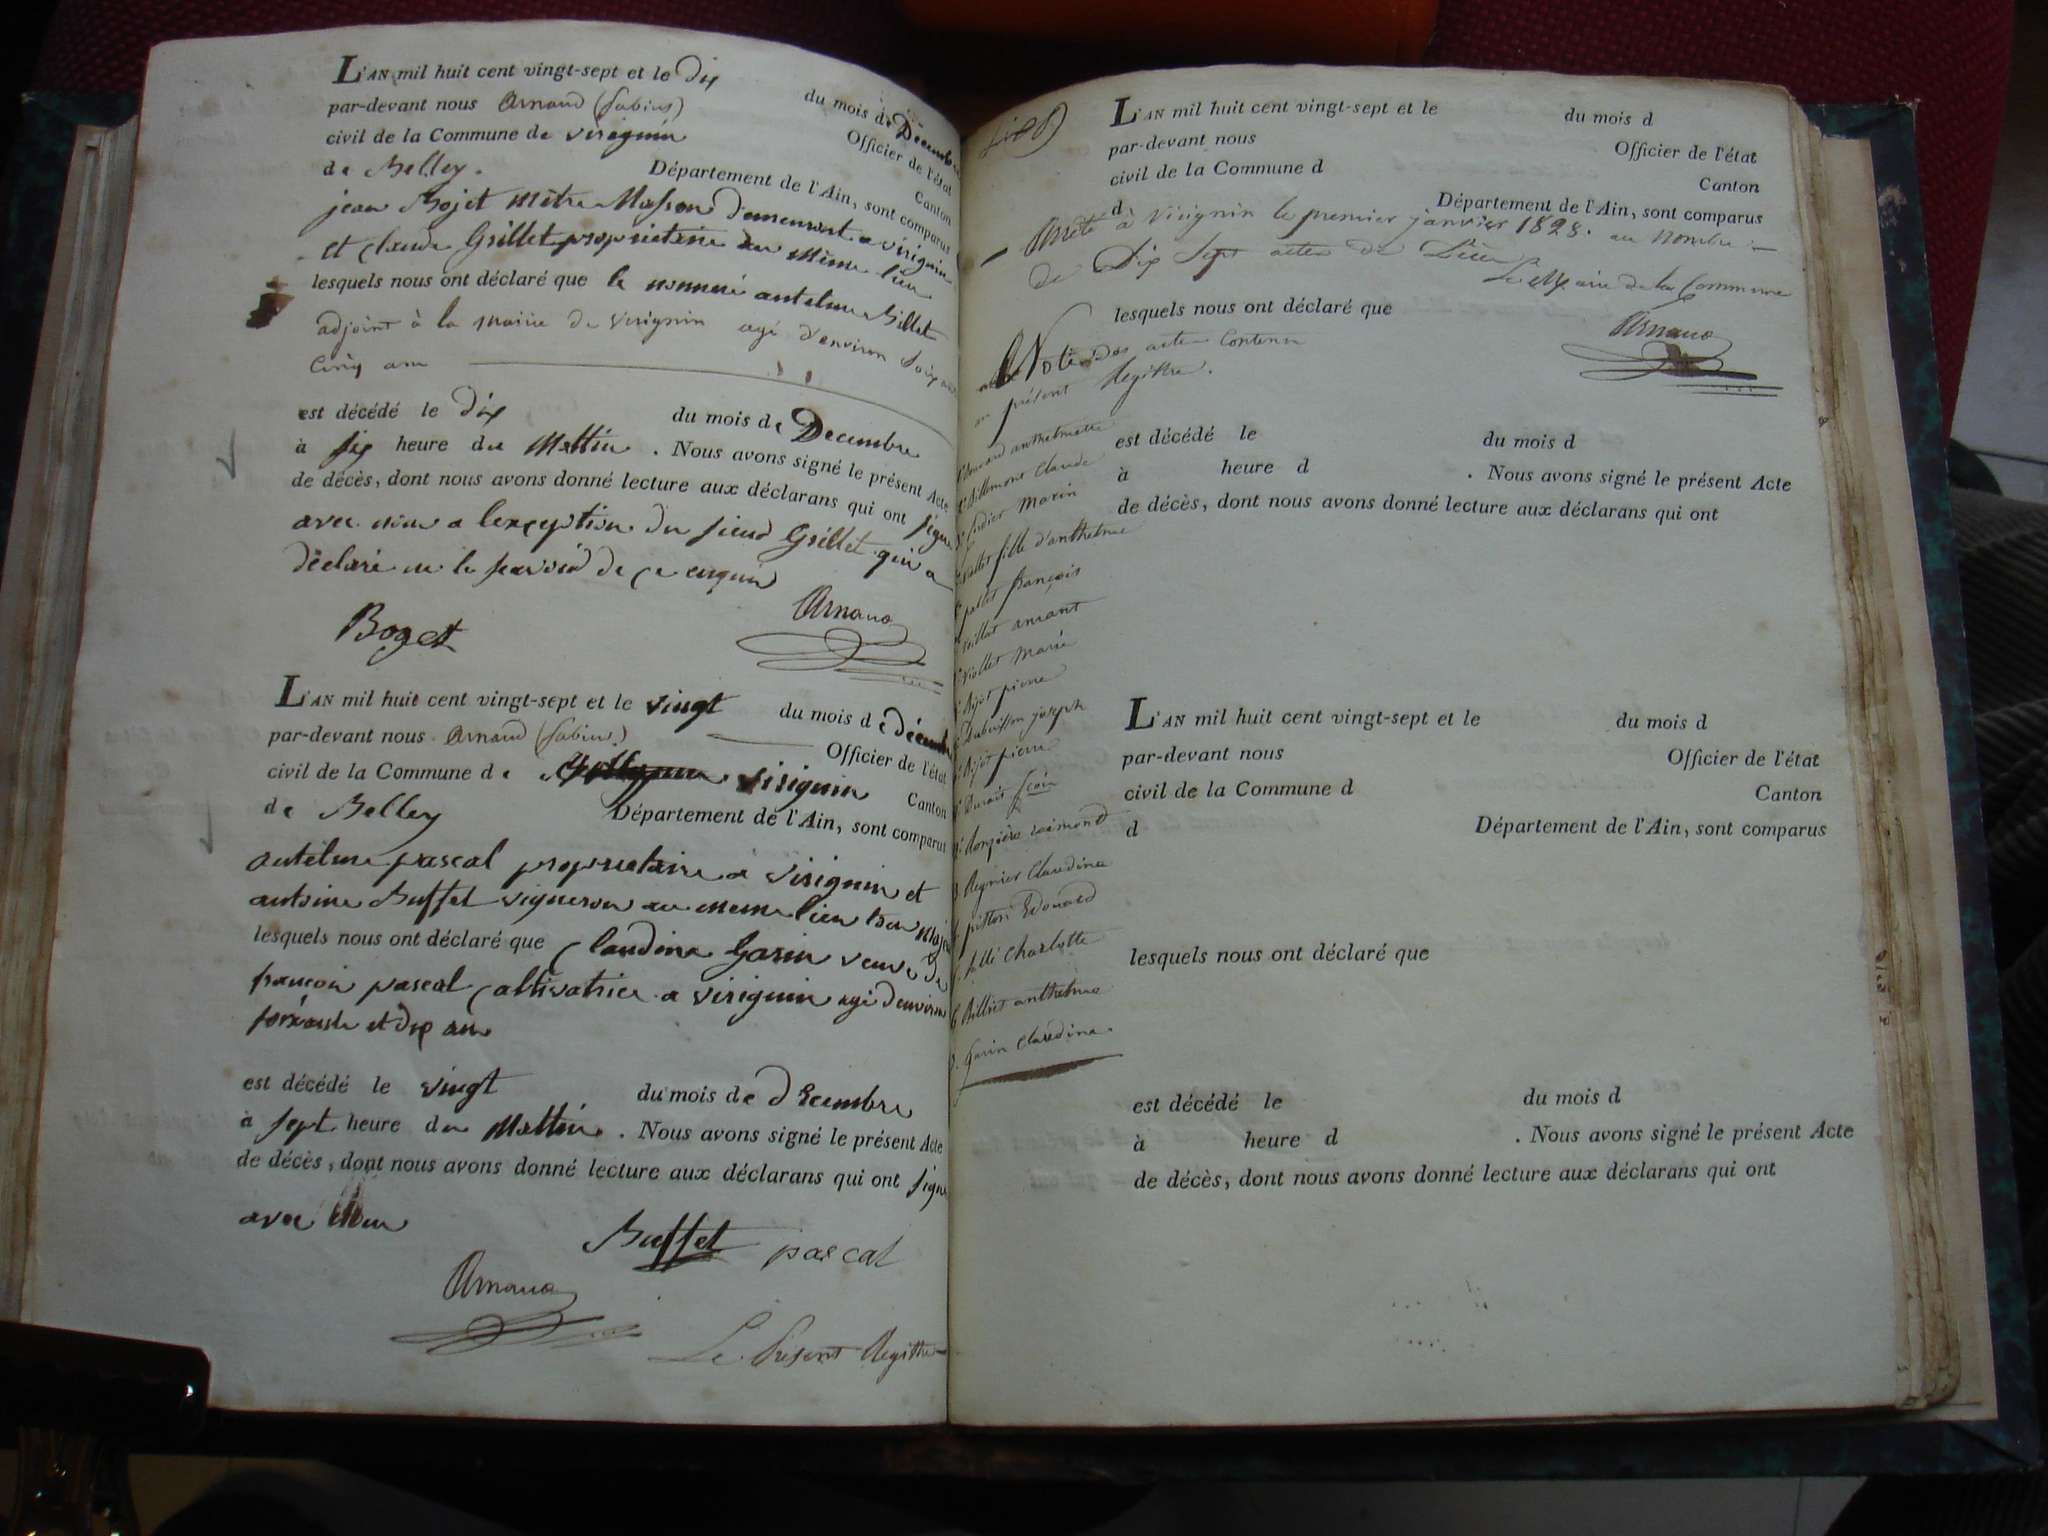 L'AN mil huit cent vingt-sept et le dix du mois de Decembre
par-devant nous Arnaud (fabius) Officier de l'état
civil de la Commune de virignin Canton
de Belley. Département de l'Ain, sont comparus
jean Bojet Mètre Masson demeurant a virignin
et claude Grillet proprietaire au Même lieu
lesquels nous ont déclaré que le nommé antelme Billet
adjoint à la Mairie de virignin agé d'environ soixante
Cinq ans
est décédé le dix du mois de Decembre
à six heure du Mattin . Nous avons signé le présent Acte
de décès, dont nous avons donné lecture aux déclarans qui ont signé
avec nous a lexception du sieud Grillet qui a
déclaré ne le savoir de ce enquis
Boget Arnaud
L'AN mil huit cent vingt-sept et le vingt du mois de décembre
par-devant nous Arnaud (fabius) Officier de l'état
civil de la Commune de virignin Canton
de Belley Département de l'Ain, sont comparus
antelme pascal proprietaire a virignin et
antoine Buffet vigneron au meme lieu tous Majeurs
lesquels nous ont déclaré que Claudine Garin veuve de
françois pascal Cultivatrice a virignin agé d'environ
soixante et dix ans
est décédé le vingt du mois de decembre
à sept heure du Mattin . Nous avons signé le présent Acte
de décès, dont nous avons donné lecture aux déclarans qui ont signé
avec nous
Buffet pascal
Arnaud
Le Présent Registre
L'AN mil huit cent vingt-sept et le du mois d
par-devant nous Officier de l'état
civil de la Commune d Canton
d Département de l'Ain, sont comparus
Arrêté à Virignin le premier janvier 1828. au Nombre
de Dix Sept actes de Décès
Le Maire de la Commune
lesquels nous ont déclaré que
Arnaud
Note des actes Contenu
au présent Registre.
est décédé le du mois d
à heure d . Nous avons signé le présent Acte
de décès, dont nous avons donné lecture aux déclarans qui ont
anthelmette
Billemont Claude
Cudier Marin
fille d'anthelme
pallet françois
amant
Viollet Marie
Bojet pierre
Dubuisson joseph
Bojet pierre
raimond
Reynier Claudine
pitton Edouard
Charlotte
Billiet anthelme
Garin Claudine.
L'AN mil huit cent vingt-sept et le du mois d
par-devant nous Officier de l'état
civil de la Commune d Canton
d Département de l'Ain, sont comparus
lesquels nous ont déclaré que
est décédé le du mois d
à heure d . Nous avons signé le présent Acte
de décès, dont nous avons donné lecture aux déclarans qui ont